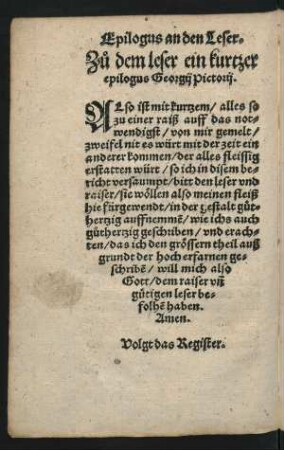 Epilogus an den Leser.
Zů dem leser ein kurtzer
epilogus Georgij Pictorij.
Also ist mit kurtzem / alles so
zu einer raiß auff das not-
wendigst / von mir gemelt /
zweifel nit es würt mit der zeit ein
anderer kommen / der alles fleissig
erstatten würt / so ich in disem be-
richt versaumpt / bitt den leser vnd
raiser / sie wöllen also meinen fleiß
hie fürgewendt / in der gestalt gůt-
hertzig auffnemmē / wie ichs auch
gůthertzig geschriben / vnd erach-
ten / das ich den grössern theil auß
grundt der hoch erfarnen ge-
schribē / will mich also
Gott / dem raiser vñ
gütigen leser be-
folhē haben.
Amen.
Volgt das Register.